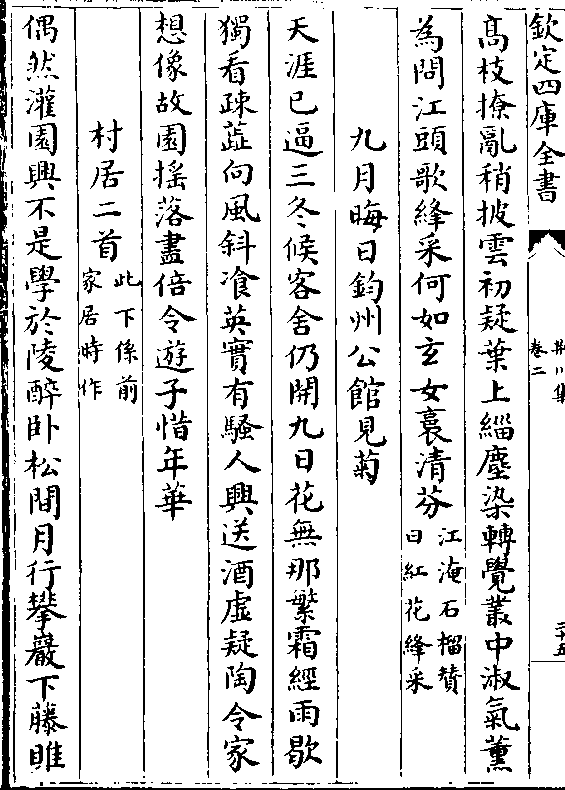 欽定四庫全書
荆川集
卷二
二十五
髙枝撩亂稍披雲初疑葉上緇塵染轉覺叢中淑氣薰
為問江頭歌絳采何如玄女裛清芬江淹石榴贊
曰紅花絳采
九月晦日鈞州公館見菊
天涯已逼三冬候客舍仍開九日花無那繁霜經雨歇
獨看疎蘂向風斜飡英實有騷人興送酒虛疑陶令家
想像故園揺落盡倍令遊子惜年華
村居二首此下係前
家居時作
偶然灌園興不是學於陵醉卧松間月行攀巖下藤睢